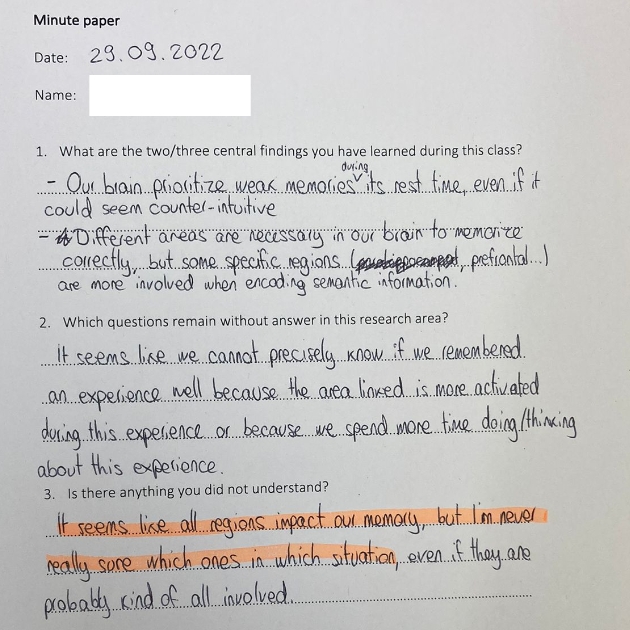 Minute paper
Date: 29.09.2022
Name:
1. What are the two/three central findings you have learned during this class?
during
- Our brain prioritize weak memories its rest time, even if it
could seem counter-intuitive
- Different areas are necessary in our brain to memorize
correctly, but some specific regions ( , prefrontal...)
are more involved when encoding semantic information.
2. Which questions remain without answer in this research area?
It seems like we cannot precisely know if we remembered
an experience well because the area linked is more activated
during this experience or because we spend more time doing/thinking
about this experience.
3. Is there anything you did not understand?
It seems like all regions impact our memory, but I'm never
really sure which ones in which situation, even if they are
probably kind of all involved.